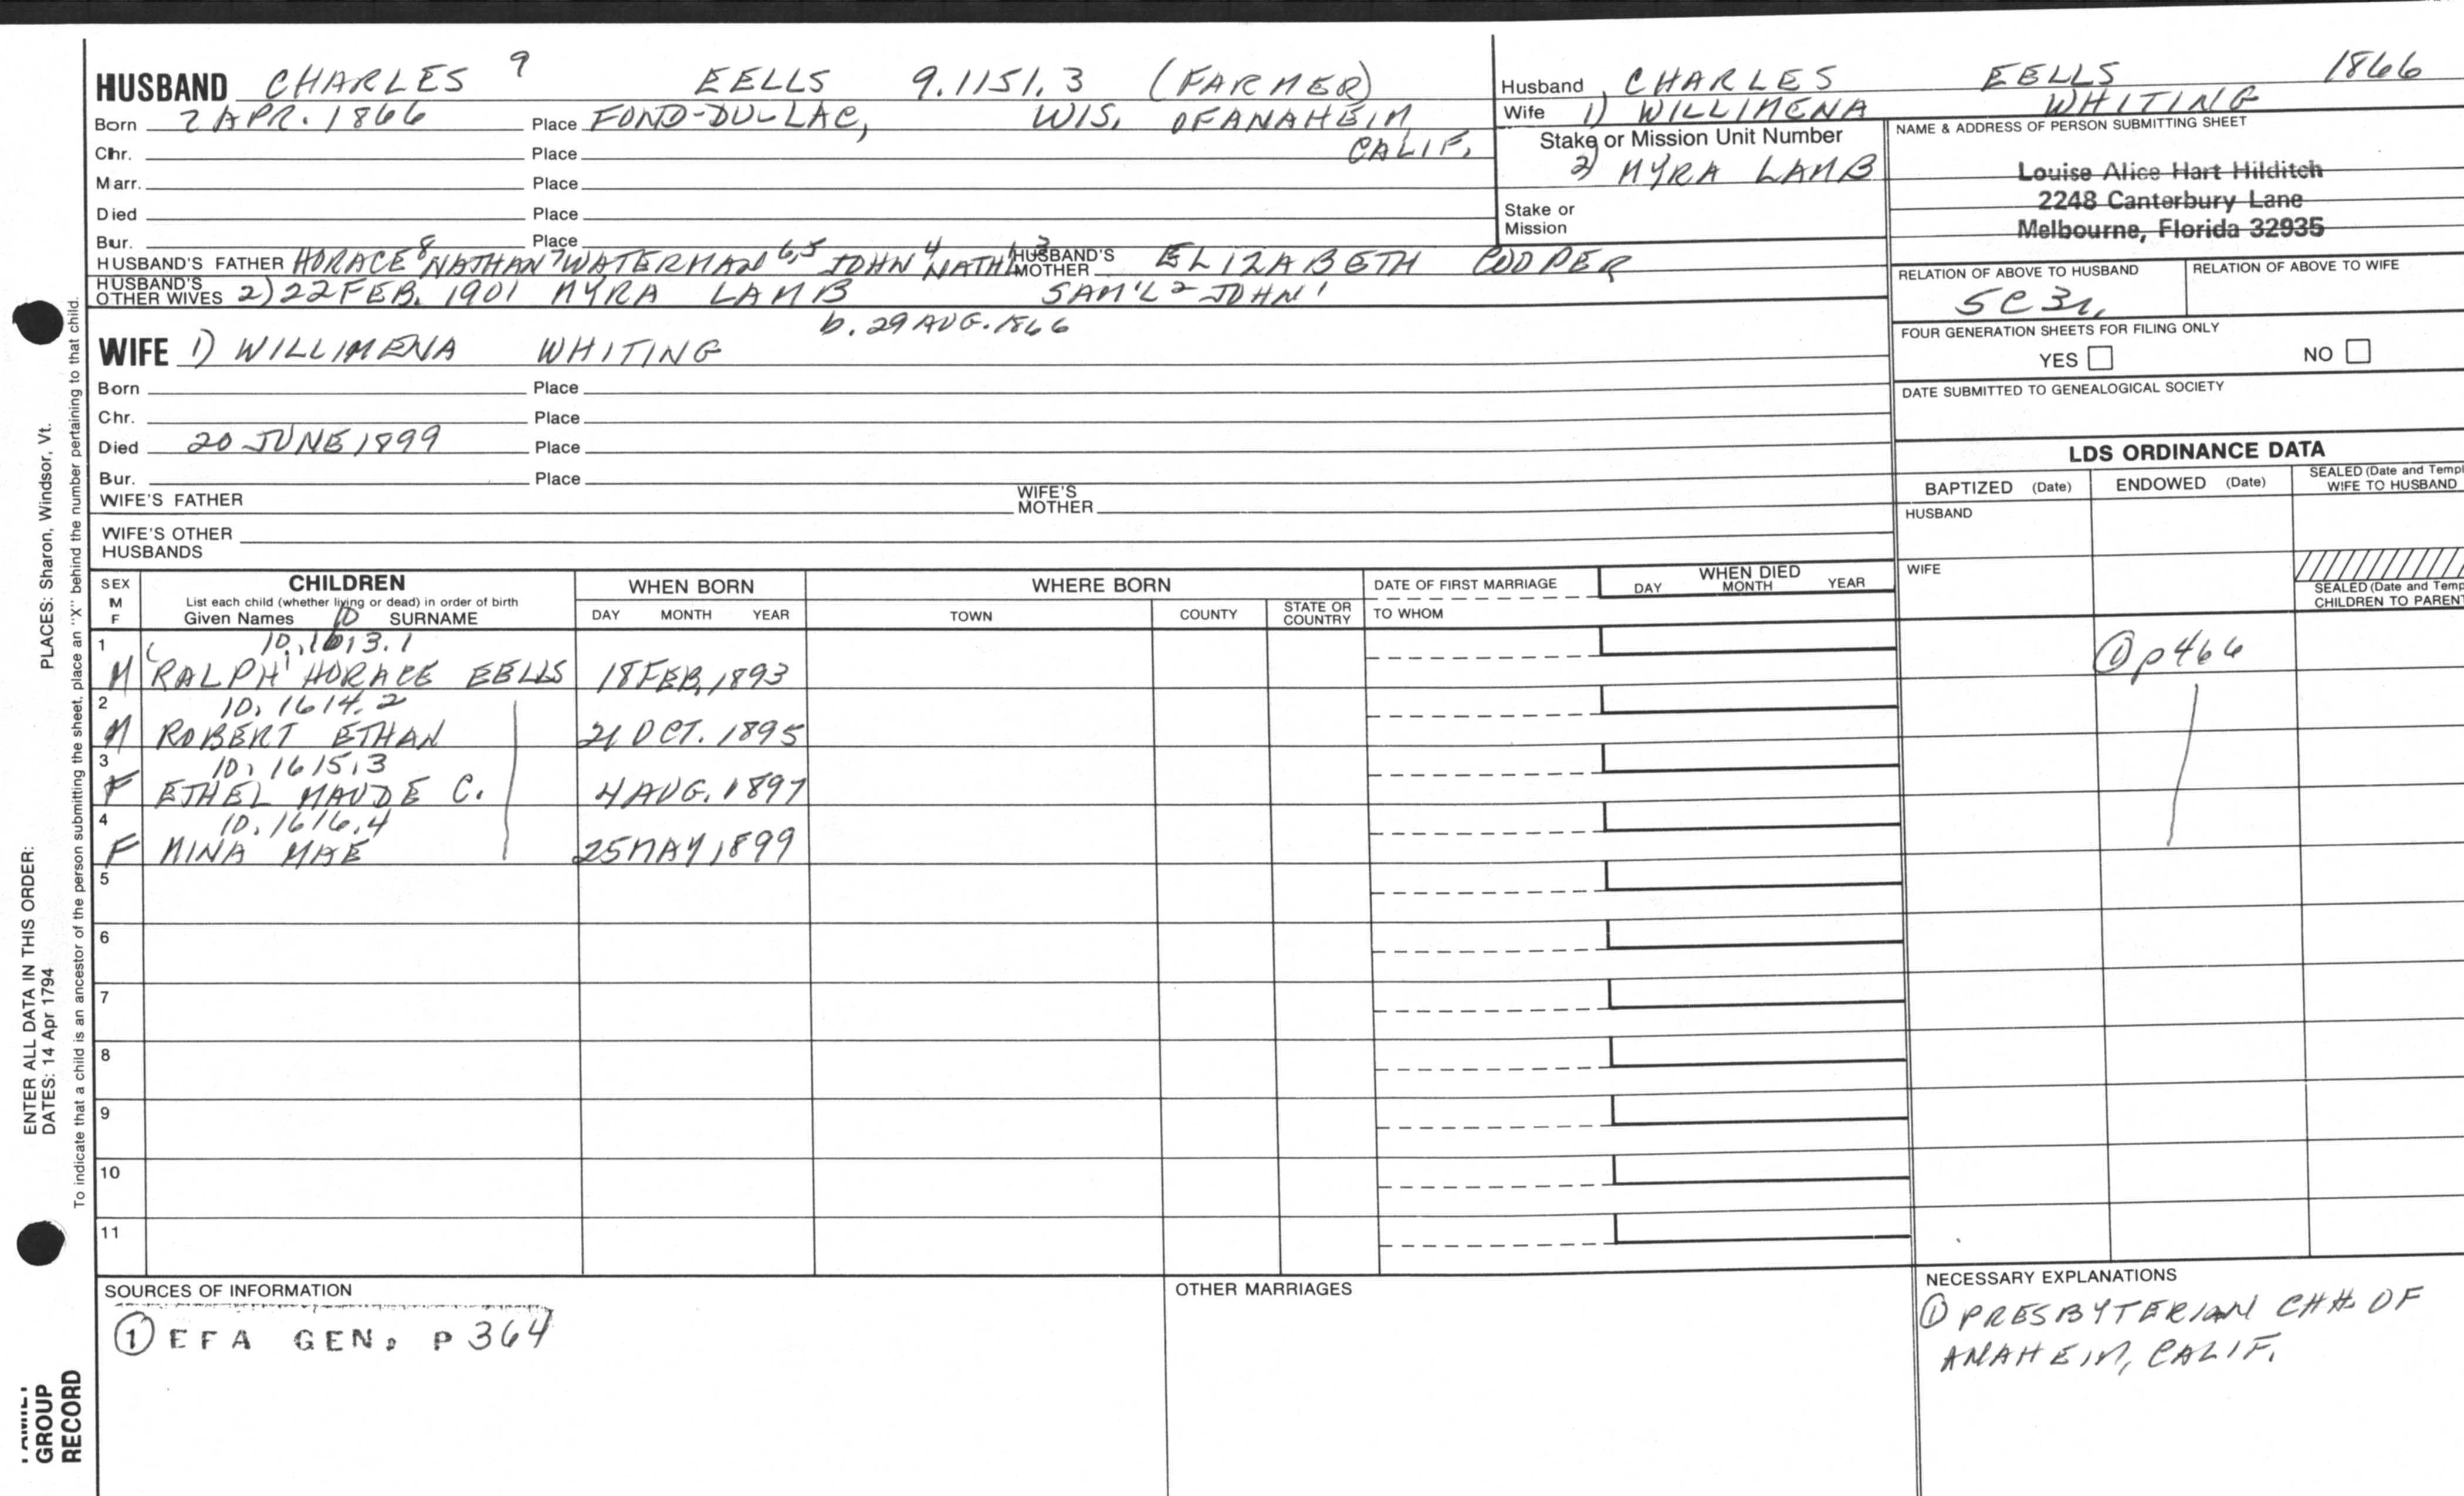 HUSBAND CHARLES 9 EELLS 9.1151.3 (FARMER)
Born 2 APR. 1866 Place FOND-DU-LAC, WIS. OF ANAHEIM
Chr. Place CALIF.
Marr. Place
Died Place
Bur. Place
HUSBAND'S FATHER HORACE 8 NATHAN 7 WATERMAN 6,5 JOHN 4 NATH'L 3 HUSBAND'S MOTHER ELIZABETH COOPER
HUSBAND'S OTHER WIVES 2) 22 FEB. 1901 MYRA LAMB SAM'L 2 JOHN 1
b. 29 AUG. 1866
WIFE 1) WILLIMENA WHITING
Born Place
Chr. Place
Died 20 JUNE 1899 Place
Bur. Place
WIFE'S FATHER WIFE'S MOTHER
WIFE'S OTHER HUSBANDS
Husband CHARLES EELLS 1866
Wife 1) WILLIMENA WHITING
Stake or Mission Unit Number
2) MYRA LAMB
Stake or
Mission
NAME & ADDRESS OF PERSON SUBMITTING SHEET
Louise Alice Hart Hilditch
2248 Canterbury Lane
Melbourne, Florida 32935
RELATION OF ABOVE TO HUSBAND RELATION OF ABOVE TO WIFE
5C3r.
FOUR GENERATION SHEETS FOR FILING ONLY
YES NO
DATE SUBMITTED TO GENEALOGICAL SOCIETY
LDS ORDINANCE DATA
BAPTIZED (Date) ENDOWED (Date) SEALED (Date and Templ
WIFE TO HUSBAND
HUSBAND
WIFE
SEALED (Date and Temp
CHILDREN TO PARENT
SEX
M
F
CHILDREN
List each child (whether living or dead) in order of birth
Given Names 10 SURNAME
WHEN BORN
DAY MONTH YEAR
WHERE BORN
TOWN COUNTY STATE OR COUNTRY
DATE OF FIRST MARRIAGE
TO WHOM
WHEN DIED
DAY MONTH YEAR
1 10.1613.1
M RALPH HORACE EELLS 18 FEB. 1893 ① p466
2 10.1614.2
M ROBERT ETHAN 21 OCT. 1895
3 10.1615.3
F ETHEL MAUDE C. 4 AUG. 1897
4 10.1616.4
F MINA MAE 25 MAY 1899
5
6
7
8
9
10
11
SOURCES OF INFORMATION
① EFA GEN, P 364
OTHER MARRIAGES
NECESSARY EXPLANATIONS
① PRESBYTERIAN CHH. OF
ANAHEIM, CALIF.
PLACES: Sharon, Windsor, Vt.
ENTER ALL DATA IN THIS ORDER:
DATES: 14 Apr 1794
To indicate that a child is an ancestor of the person submitting the sheet, place an "X" behind the number pertaining to that child.
FAMILY
GROUP
RECORD